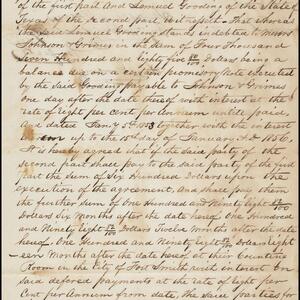 of the first part and Lemuel Gooding of the State
Texas of the second part Witnesseth That whereas
the said Lemuel Gooding stands indebted to Messrs
Johnson & Grimes in the sum of Four Thousand
Seven Hundred and Eighty five Dollars being a
balance due on a certain promissory note executed
by the said Gooding payable to Johnson & Grimes
one day after the date thereof with interest at the
rate of Eight per cent per annum until paid,
And dated Jany 5th 1853 together with the interest
at January 1st 1856,
It is hereby agreed that if the said party of the
second part shall pay to the said party of the
first part the sum of Six Hundred Dollars upon
the execution of the agreement, and shall pay
them the further sum of One Hundred and Ninety Eight /100
Dollars Six Months after the date hereof One Hundred
and Ninety Eight /100 Dollars Twelve Months after the date
hereof One Hundred and Ninety Eight /100 Dollars Eight
-een Months after the date hereof at their Counting
Room in the City of Fort Smith with interest on
said defered payments at the rate of Eight per
Cent per annum from date, the said parties for